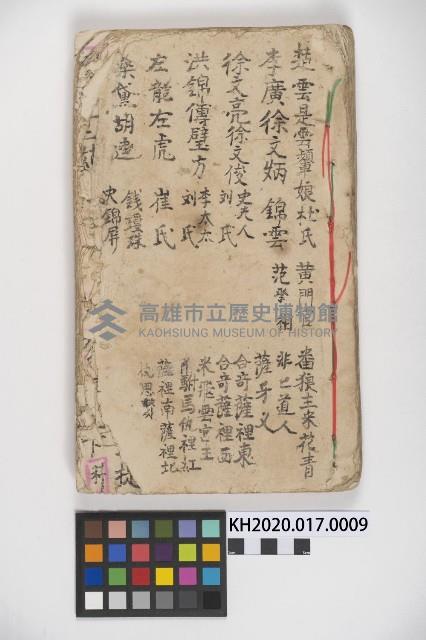 楚雲是雲顰娘杜氏 黃門官 番狼主米花青
李廣徐文炳 錦雲 范 非已道人
徐文亮徐文俊 史夫人 刘氏 薩牙义
洪錦傳璧方 李太太 刘氏 合奇薩裡東 合奇薩裡西
左龍左虎 崔氏 米飛雲 駙馬
桑黛胡逵 錢瓊珠 史錦屏 薩裡南薩裡北
高雄市立歷史博物館
KAOHSIUNG MUSEUM OF HISTORY
KH2020.017.0009